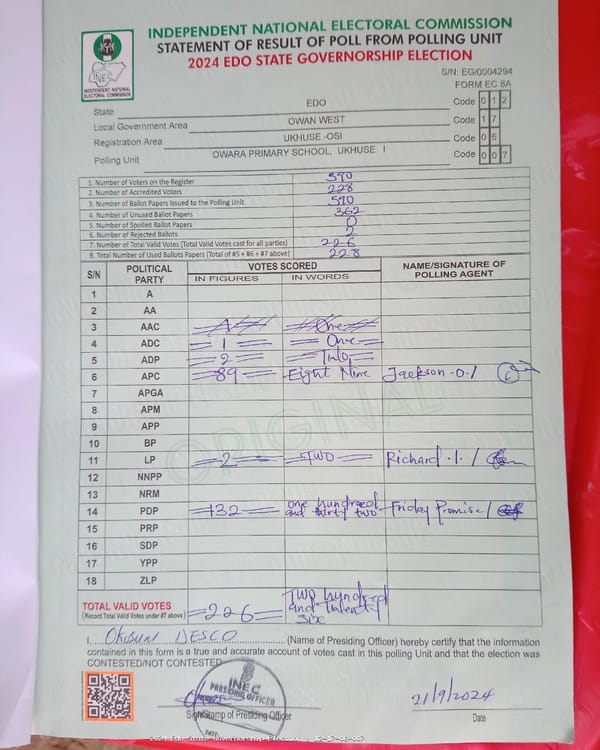 INDEPENDENT NATIONAL ELECTORAL COMMISSION
STATEMENT OF RESULT OF POLL FROM POLLING UNIT
2024 EDO STATE GOVERNORSHIP ELECTION
INEC
INDEPENDENT NATIONAL
ELECTORAL COMMISSION
S/N: EG/0004294
FORM EC 8A
State EDO Code 0 1 2
Local Government Area OWAN WEST Code 1 7
Registration Area UKHUSE -OSI Code 0 6
Polling Unit OWARA PRIMARY SCHOOL, UKHUSE I Code 0 0 7
1. Number of Voters on the Register 590
2. Number of Accredited Voters 228
3. Number of Ballot Papers Issued to the Polling Unit 590
4. Number of Unused Ballot Papers 362
5. Number of Spoiled Ballot Papers 0
6. Number of Rejected Ballots 2
7. Number of Total Valid Votes (Total Valid Votes cast for all parties) 226
8. Total Number of Used Ballots Papers (Total of #5 + #6 + #7 above) 228
S/N POLITICAL PARTY VOTES SCORED NAME/SIGNATURE OF POLLING AGENT
IN FIGURES IN WORDS
1 A
2 AA
3 AAC One
4 ADC 1 One
5 ADP 2 Two
6 APC 89 Eight Nine Jackson .O./
7 APGA
8 APM
9 APP
10 BP
11 LP 2 TWO Richard .I./
12 NNPP
13 NRM
14 PDP 132 one hundreed and thirty two Friday Promise/
15 PRP
16 SDP
17 YPP
18 ZLP
ORIGINAL
TOTAL VALID VOTES
(Record Total Valid Votes under #7 above) 226 Two hundreed and twenty six
I, OKOSUN JESCO (Name of Presiding Officer) hereby certify that the information
contained in this form is a true and accurate account of votes cast in this polling Unit and that the election was
CONTESTED/NOT CONTESTED
INEC
PRESIDING OFFICER
DATE:
Sign/Stamp of Presiding Officer
21/9/2024
Date